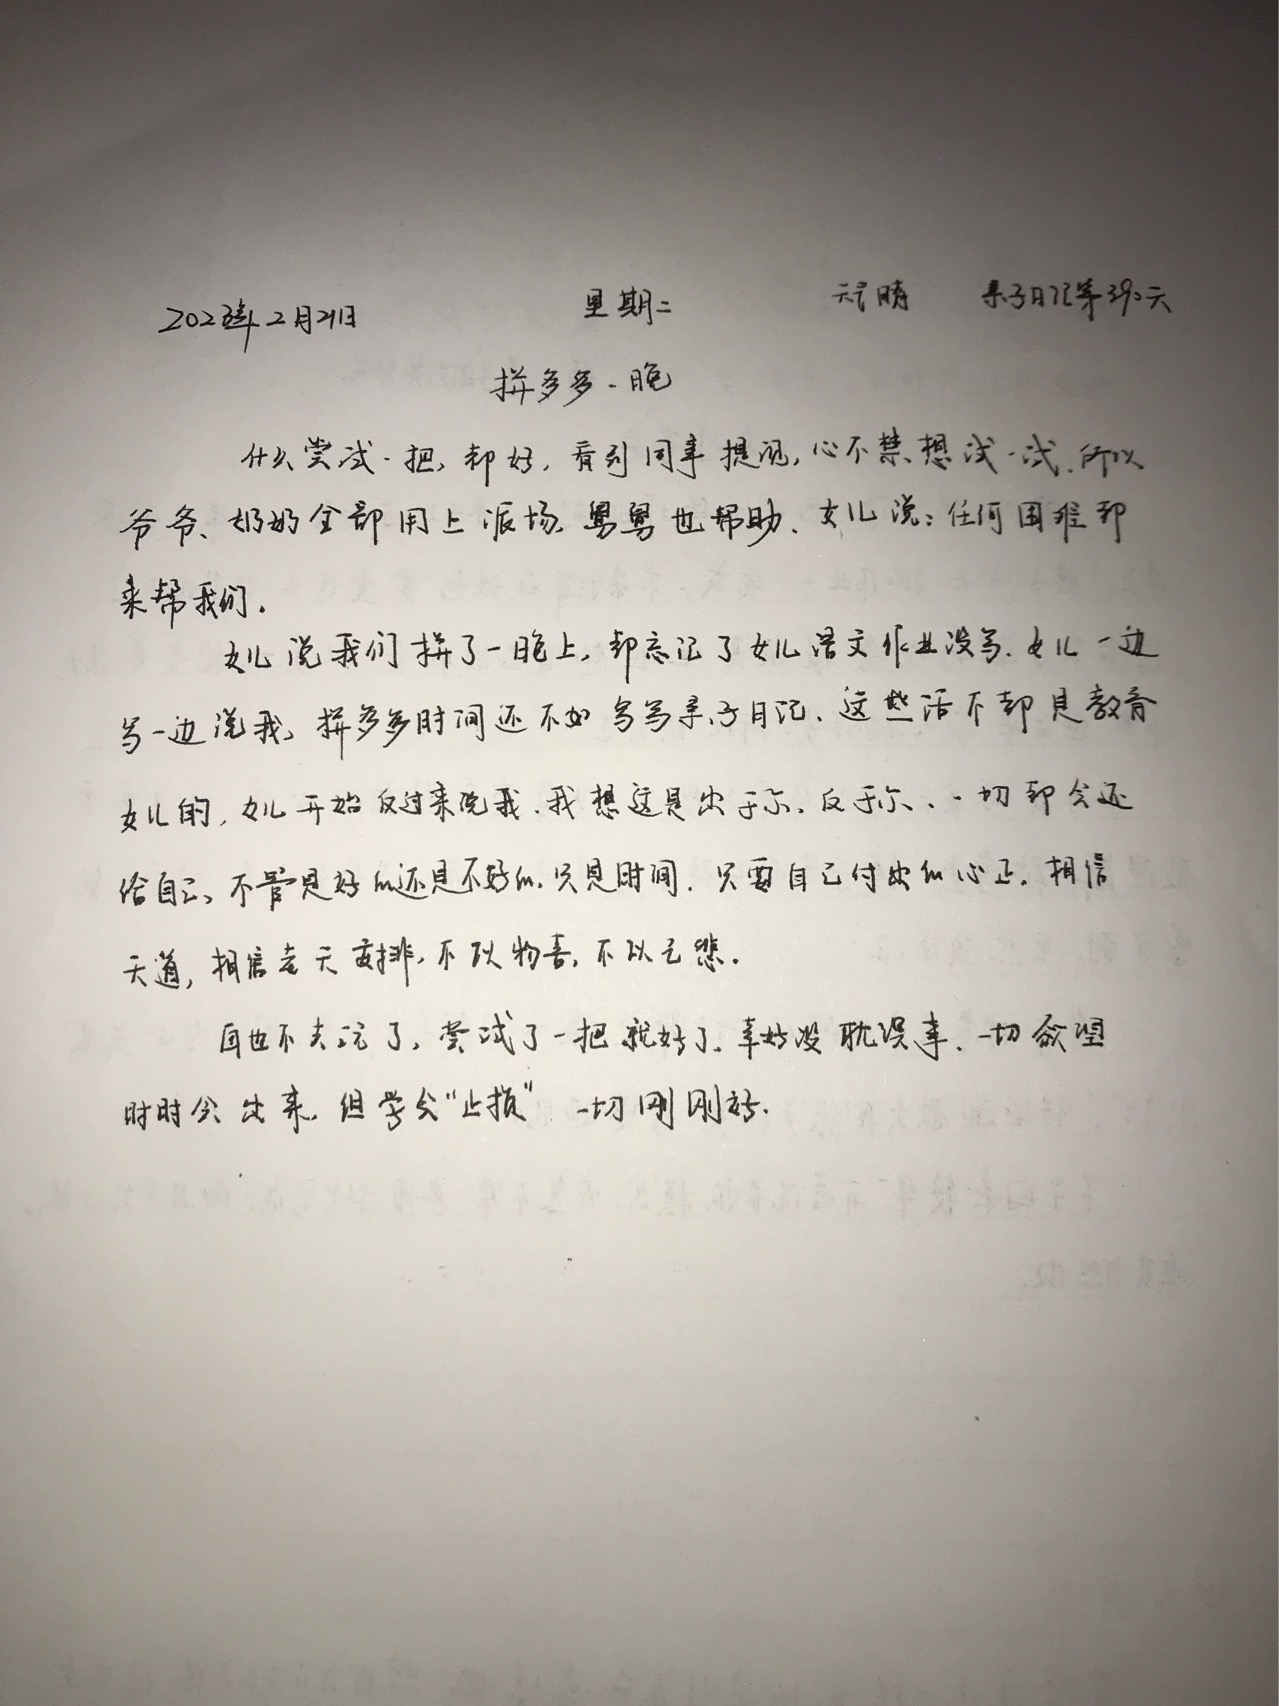 2023年2月21日 星期二 天气晴 亲子日记第390天
拼多多一晚
什么尝试一把,都好,看到同事提现,心不禁想试一试.所以
爷爷、奶奶全部用上派场,舅舅也帮助.女儿说:任何困难都
来帮我们.
女儿说我们拼了一晚上,却忘记了女儿语文作业没写.女儿一边
写一边说我,拼多多时间还不如多写亲子日记.这些话不都是教育
女儿的,女儿开始反过来说我.我想这是出于尔.反于尔、一切都会还
给自己,不管是好的还是不好的.只是时间.只要自己付出的心正.相信
天道,相信老天安排,不以物喜,不以己悲.
再也不去玩了,尝试了一把就好了.幸好没耽误事.一切欲望
时时会出来.但学会“止损” 一切刚刚好.